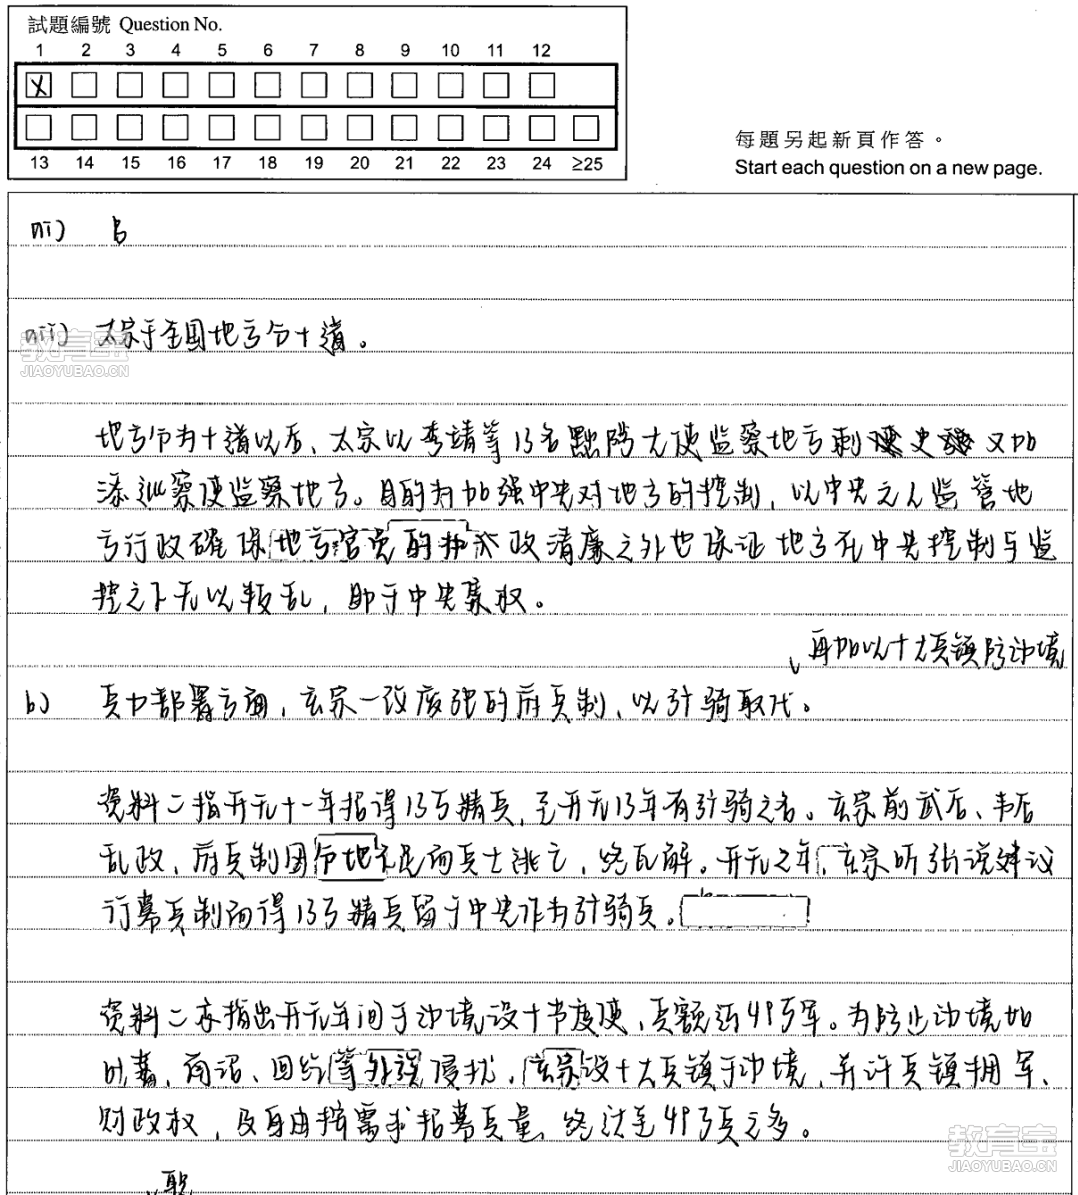 試題編號 Question No.
1 2 3 4 5 6 7 8 9 10 11 12
X
13 14 15 16 17 18 19 20 21 22 23 24 ≥25
每題另起新頁作答。
Start each question on a new page.
aii) B
aiii) 太宗于全国地方分十道。
教育宝
JIAOYUBAO.CN
地方分为十道以后、太宗以李靖等13名黜陟大使监察地方刺史 又加
添巡察使监察地方。目的为加强中央对地方的控制，以中央之人监管地
方行政确保地方官员的 政清廉之外也保证地方在中央控制与监
控之下无以叛乱，即于中央集权。
再加以十大兵镇防边境
b) 兵力部署方面，玄宗一改废弛的府兵制、以彍骑取代。
资料二指开元十一年招得13万精兵，至开元13年有彍骑之名。玄宗前武后、韦后
乱政，府兵制因分地不足而兵士逃亡，终瓦解。开元之年，玄宗听张说建议
行募兵制而得13万精兵留于中央作为彍骑兵。
资料二亦指出开元年间于边境设十节度使、兵额近49万军。为防止边境如
吐蕃、南诏、回纥等外族侵扰，玄宗设十大兵镇于边境，并许兵镇拥军、
财政权，及自由按需求招募兵量，终达至49万兵之多。
教育宝
JIAOYUBAO.CN